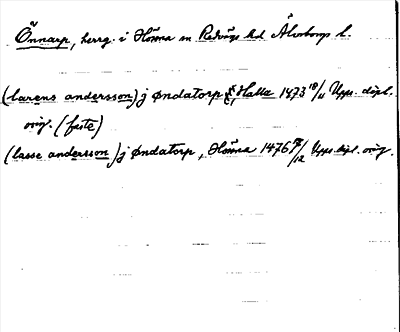 Önnarp, herrg. i Hössna sn Redvägs hd Älvsborgs l.
(larens andersson) j Øndatorp, Hatta 1473 18/11 Upps. dipl.
orig. (faste)
(lasse andersson) j Øndatorp, Hössna 1476 7/12 Upps. dipl. orig.